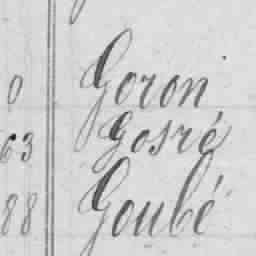 0 Goron
63 Gosré
88 Goubé